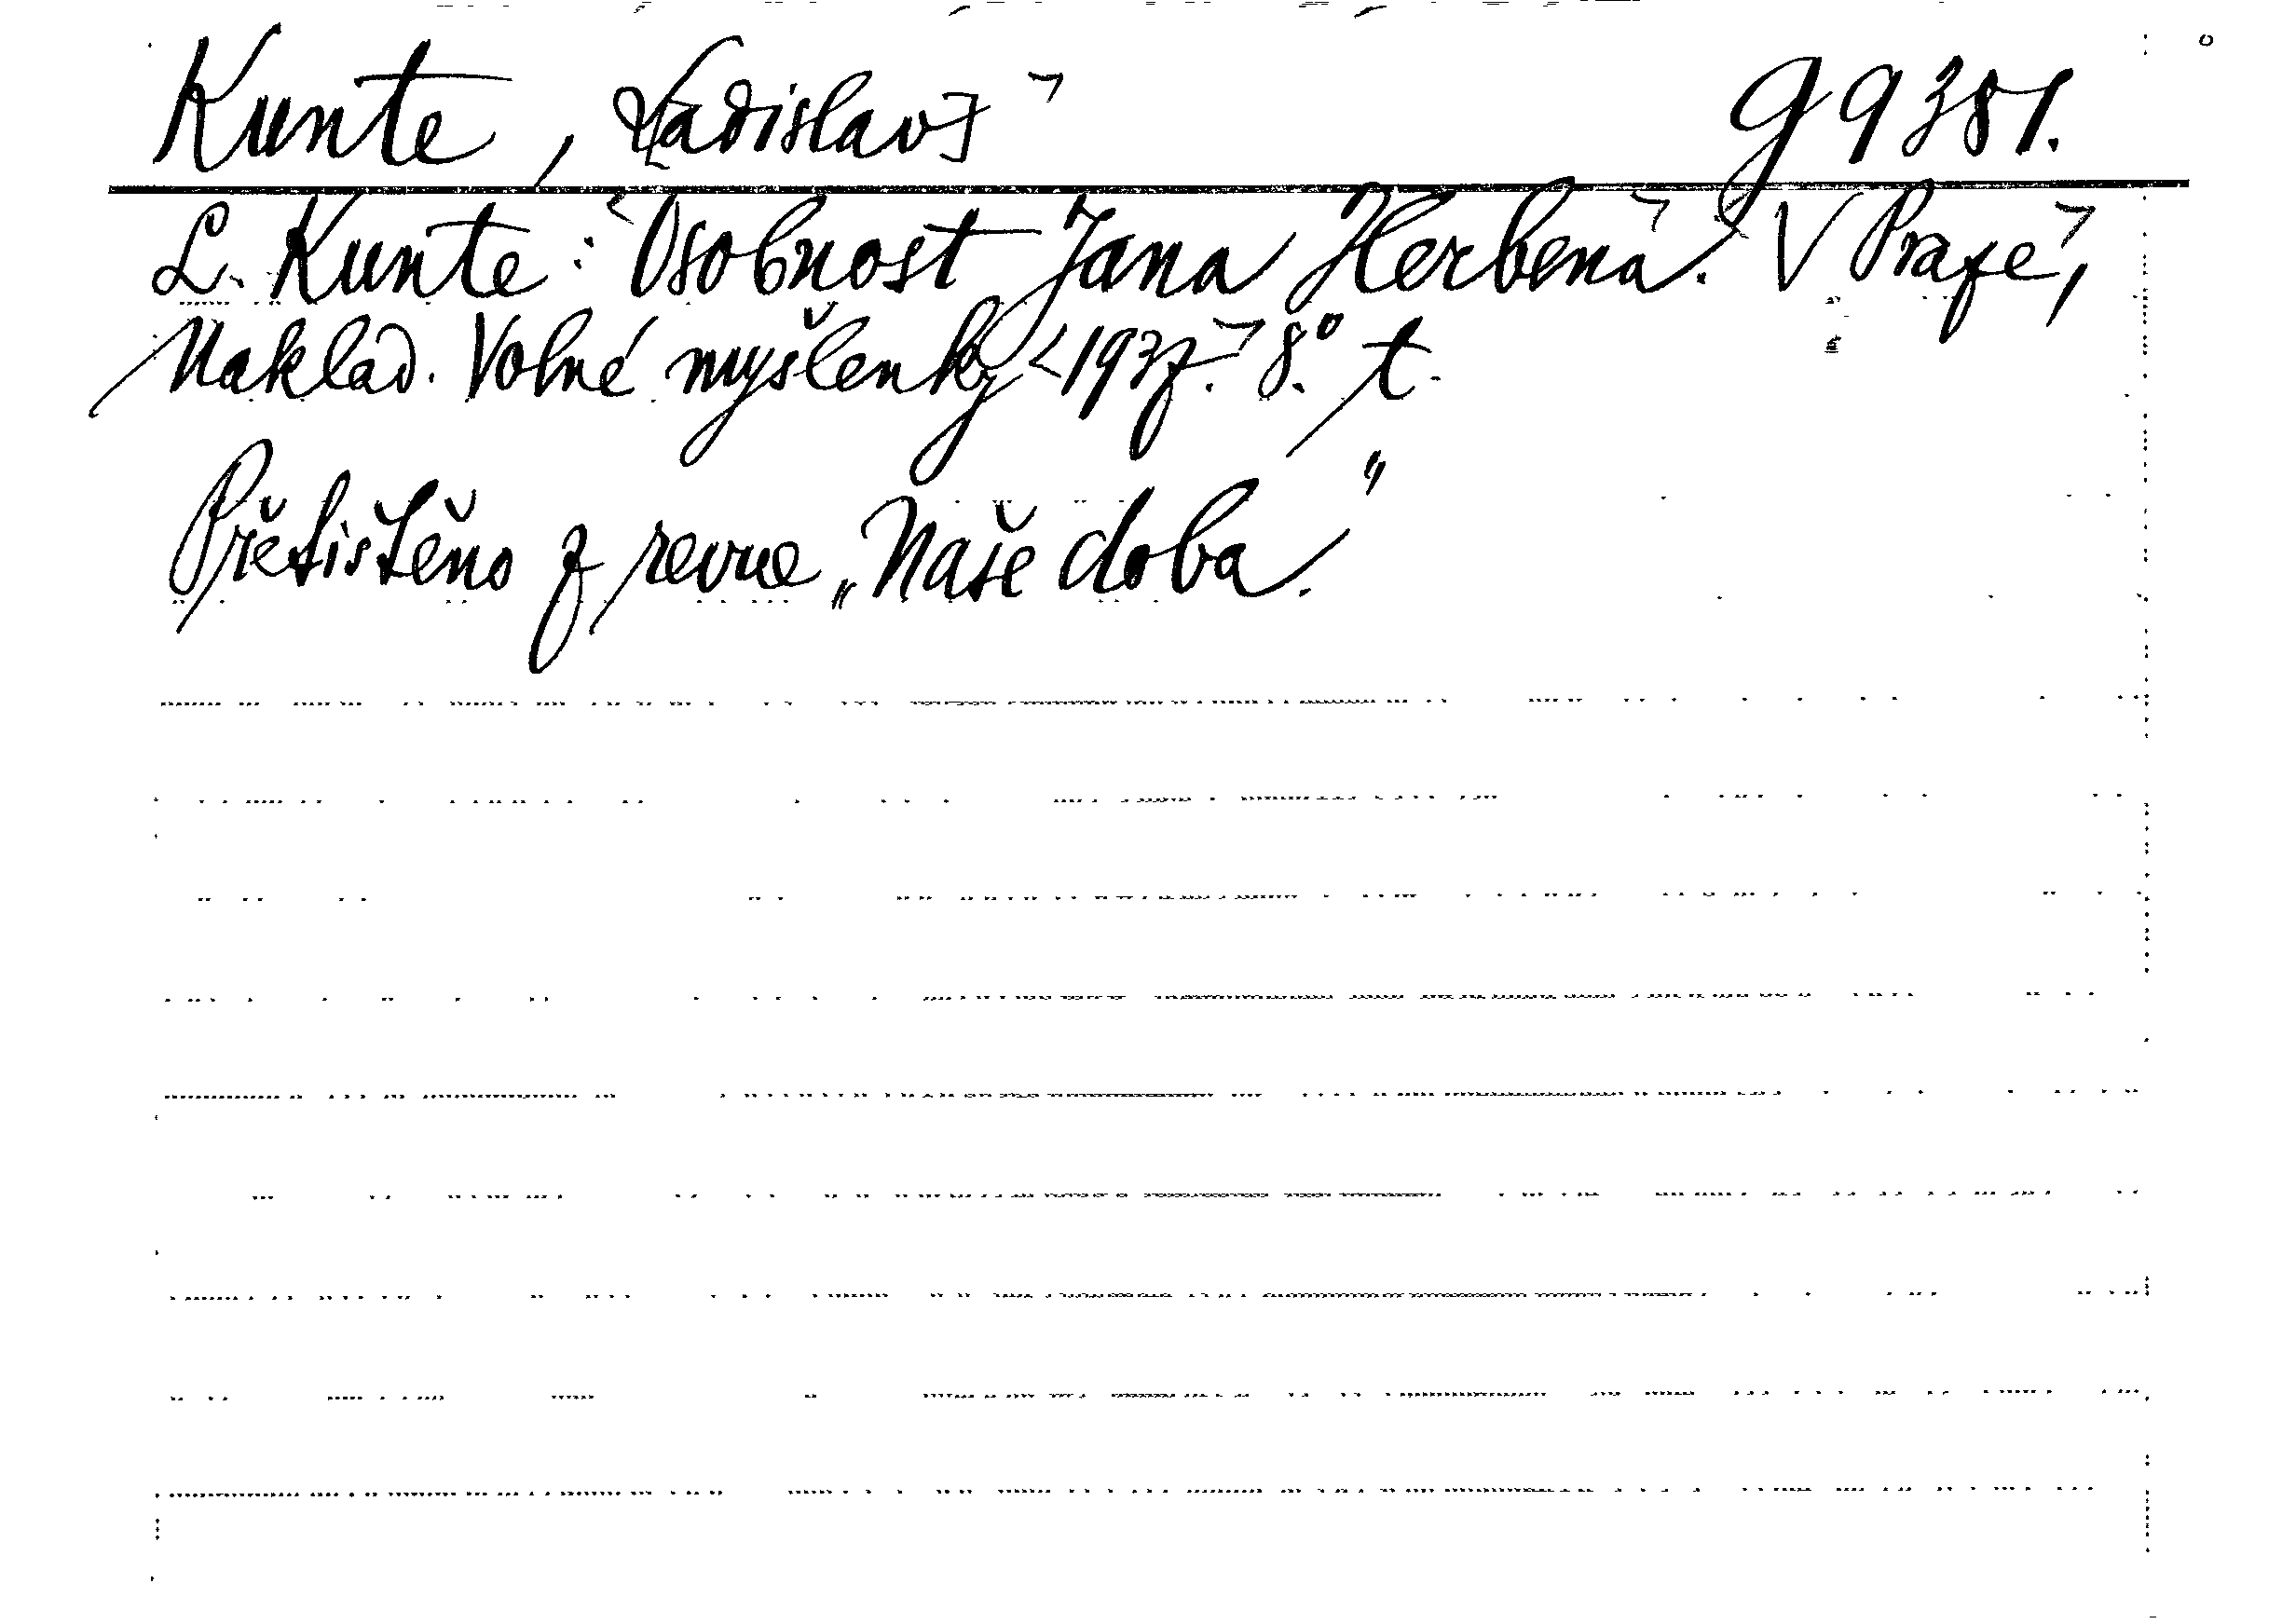 Kunte, L[adislav] g 9381.
L. Kunte: Osobnost Jana Herbena. V Praze,
Naklad. Volné myšlenky <1937.> 8.° t.
Přetištěno z revue „Naše doba.“